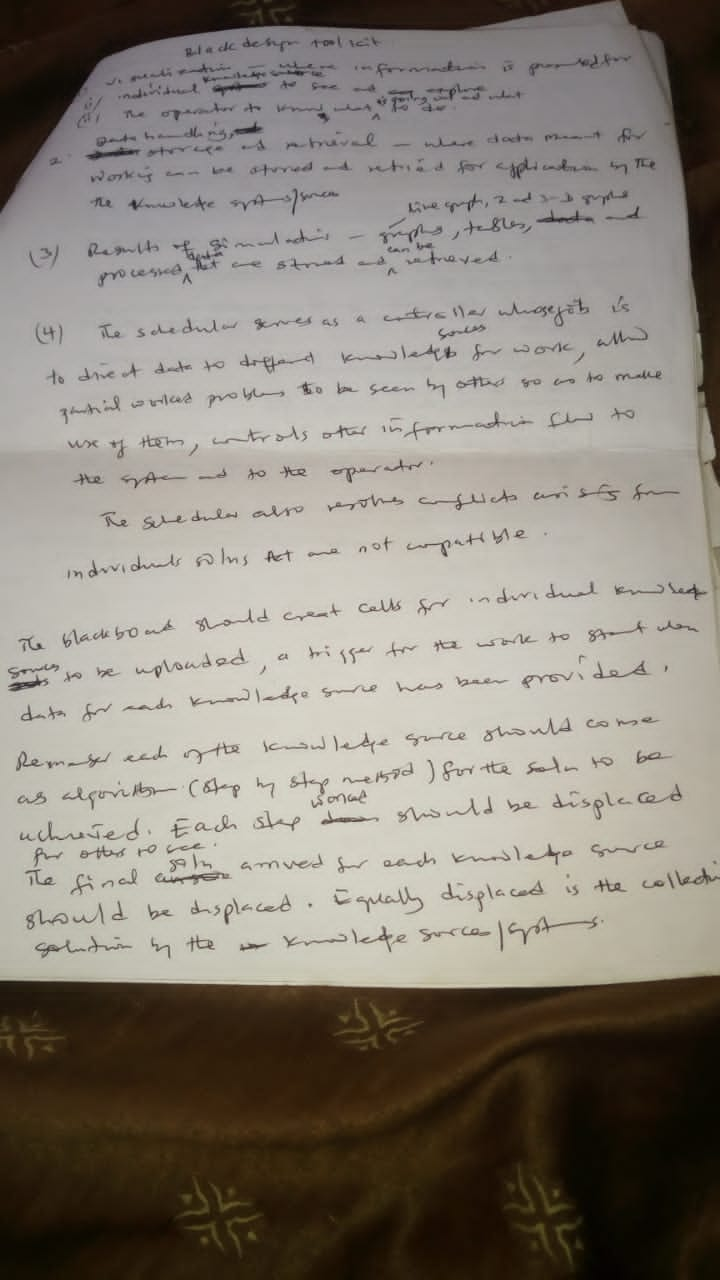 Black design toolkit
1. visualization – where information is provided for
i) individual knowledge source to see and explore
(ii) The operator to know what is going on and what to do.
2. Data handling, storage and retrieval – where data meant for
working can be stored and retried for application by the
the knowledge systems/sources
(3) Results of simulation – line graph, 2 and 3-D graphs
graphs, tables, and
processed data that are stored and can be retrieved.
(4) The schedular serves as a controller whose job is
to direct data to different knowledge sources for work, allow
partial worked problems to be seen by others so as to make
use of them, controls other information flow to
the system and to the operator.
The schedular also resolves conflicts arising from
individuals solns that are not compatible.
The blackboard should creat cells for individual knowledge
sources to be uploaded, a trigger for the work to start when
data for each knowledge source has been provided.
Remember each of the knowledge source should come
as algorithm (step by step method) for the soln to be
achieved. Each step worked should be displaced
for others to see.
The final soln arrived for each knowledge source
should be displaced. Equally displaced is the collecti
solution by the knowledge sources/systems.